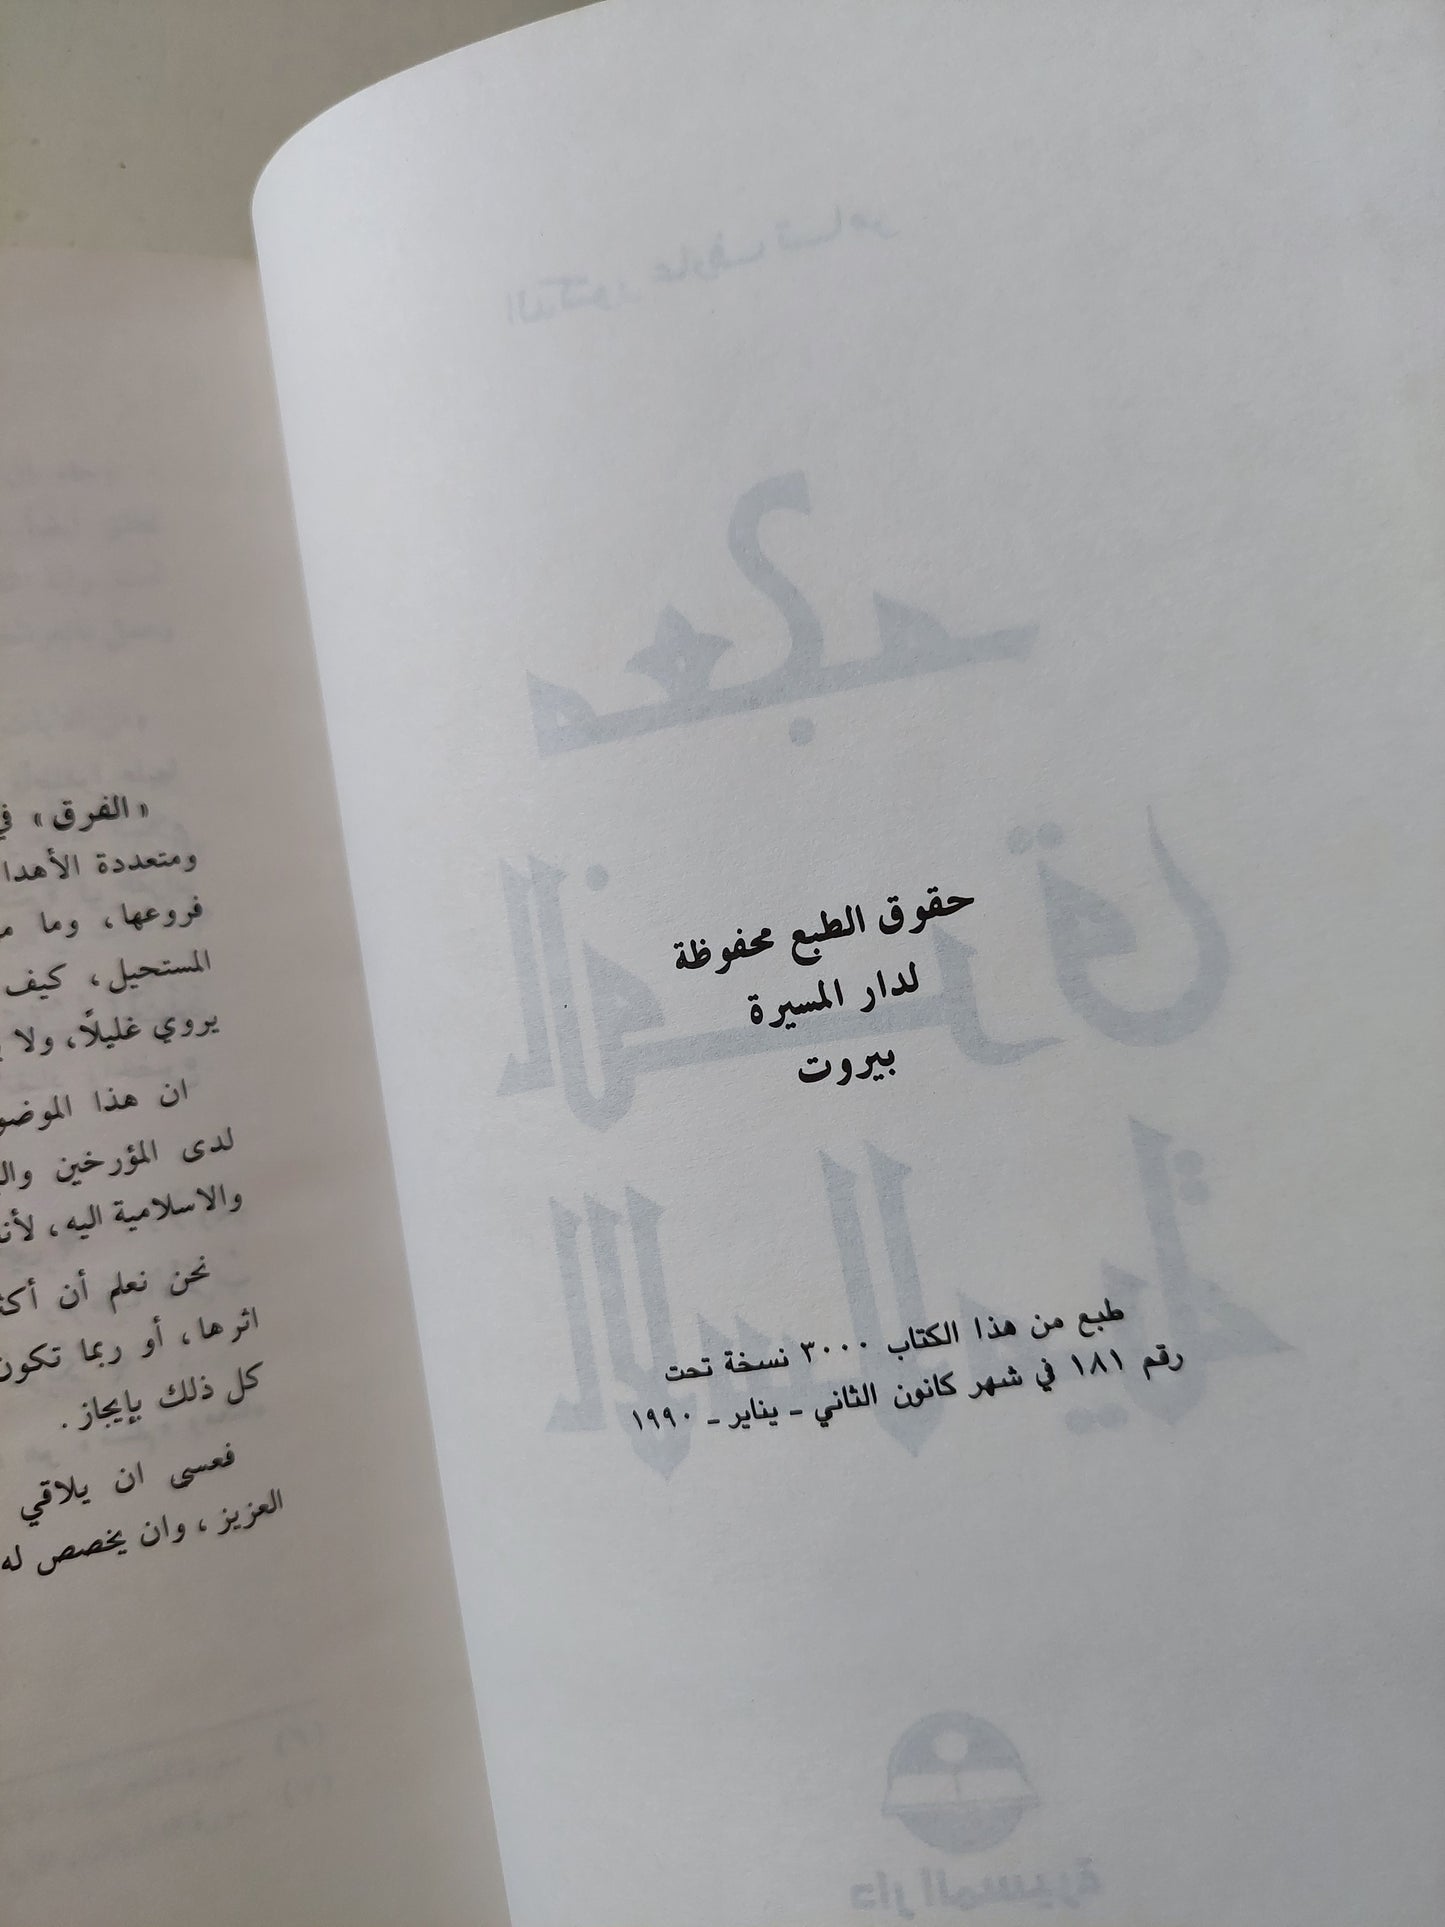 حقوق الطبع محفوظة
لدار المسيرة
بيروت
طبع من هذا الكتاب ٣٠٠٠ نسخة تحت
رقم ١٨١ في شهر كانون الثاني ـ يناير ـ ١٩٩٠
الدكتور عارف تامر
معجم
الفرق
الإسلامية
دار المسيرة
«الفرق» في
ومتعددة الأهدا
فروعها، وما
المستحيل، كيف
يروي غليلًا، ولا
ان هذا الموضو
لدى المؤرخين وال
والاسلامية اليه، لأنه
نحن نعلم أن أكثر
اثرها، أو ربما تكون
كل ذلك بإيجاز.
فعسى ان يلاقي
العزيز، وان يخصص له